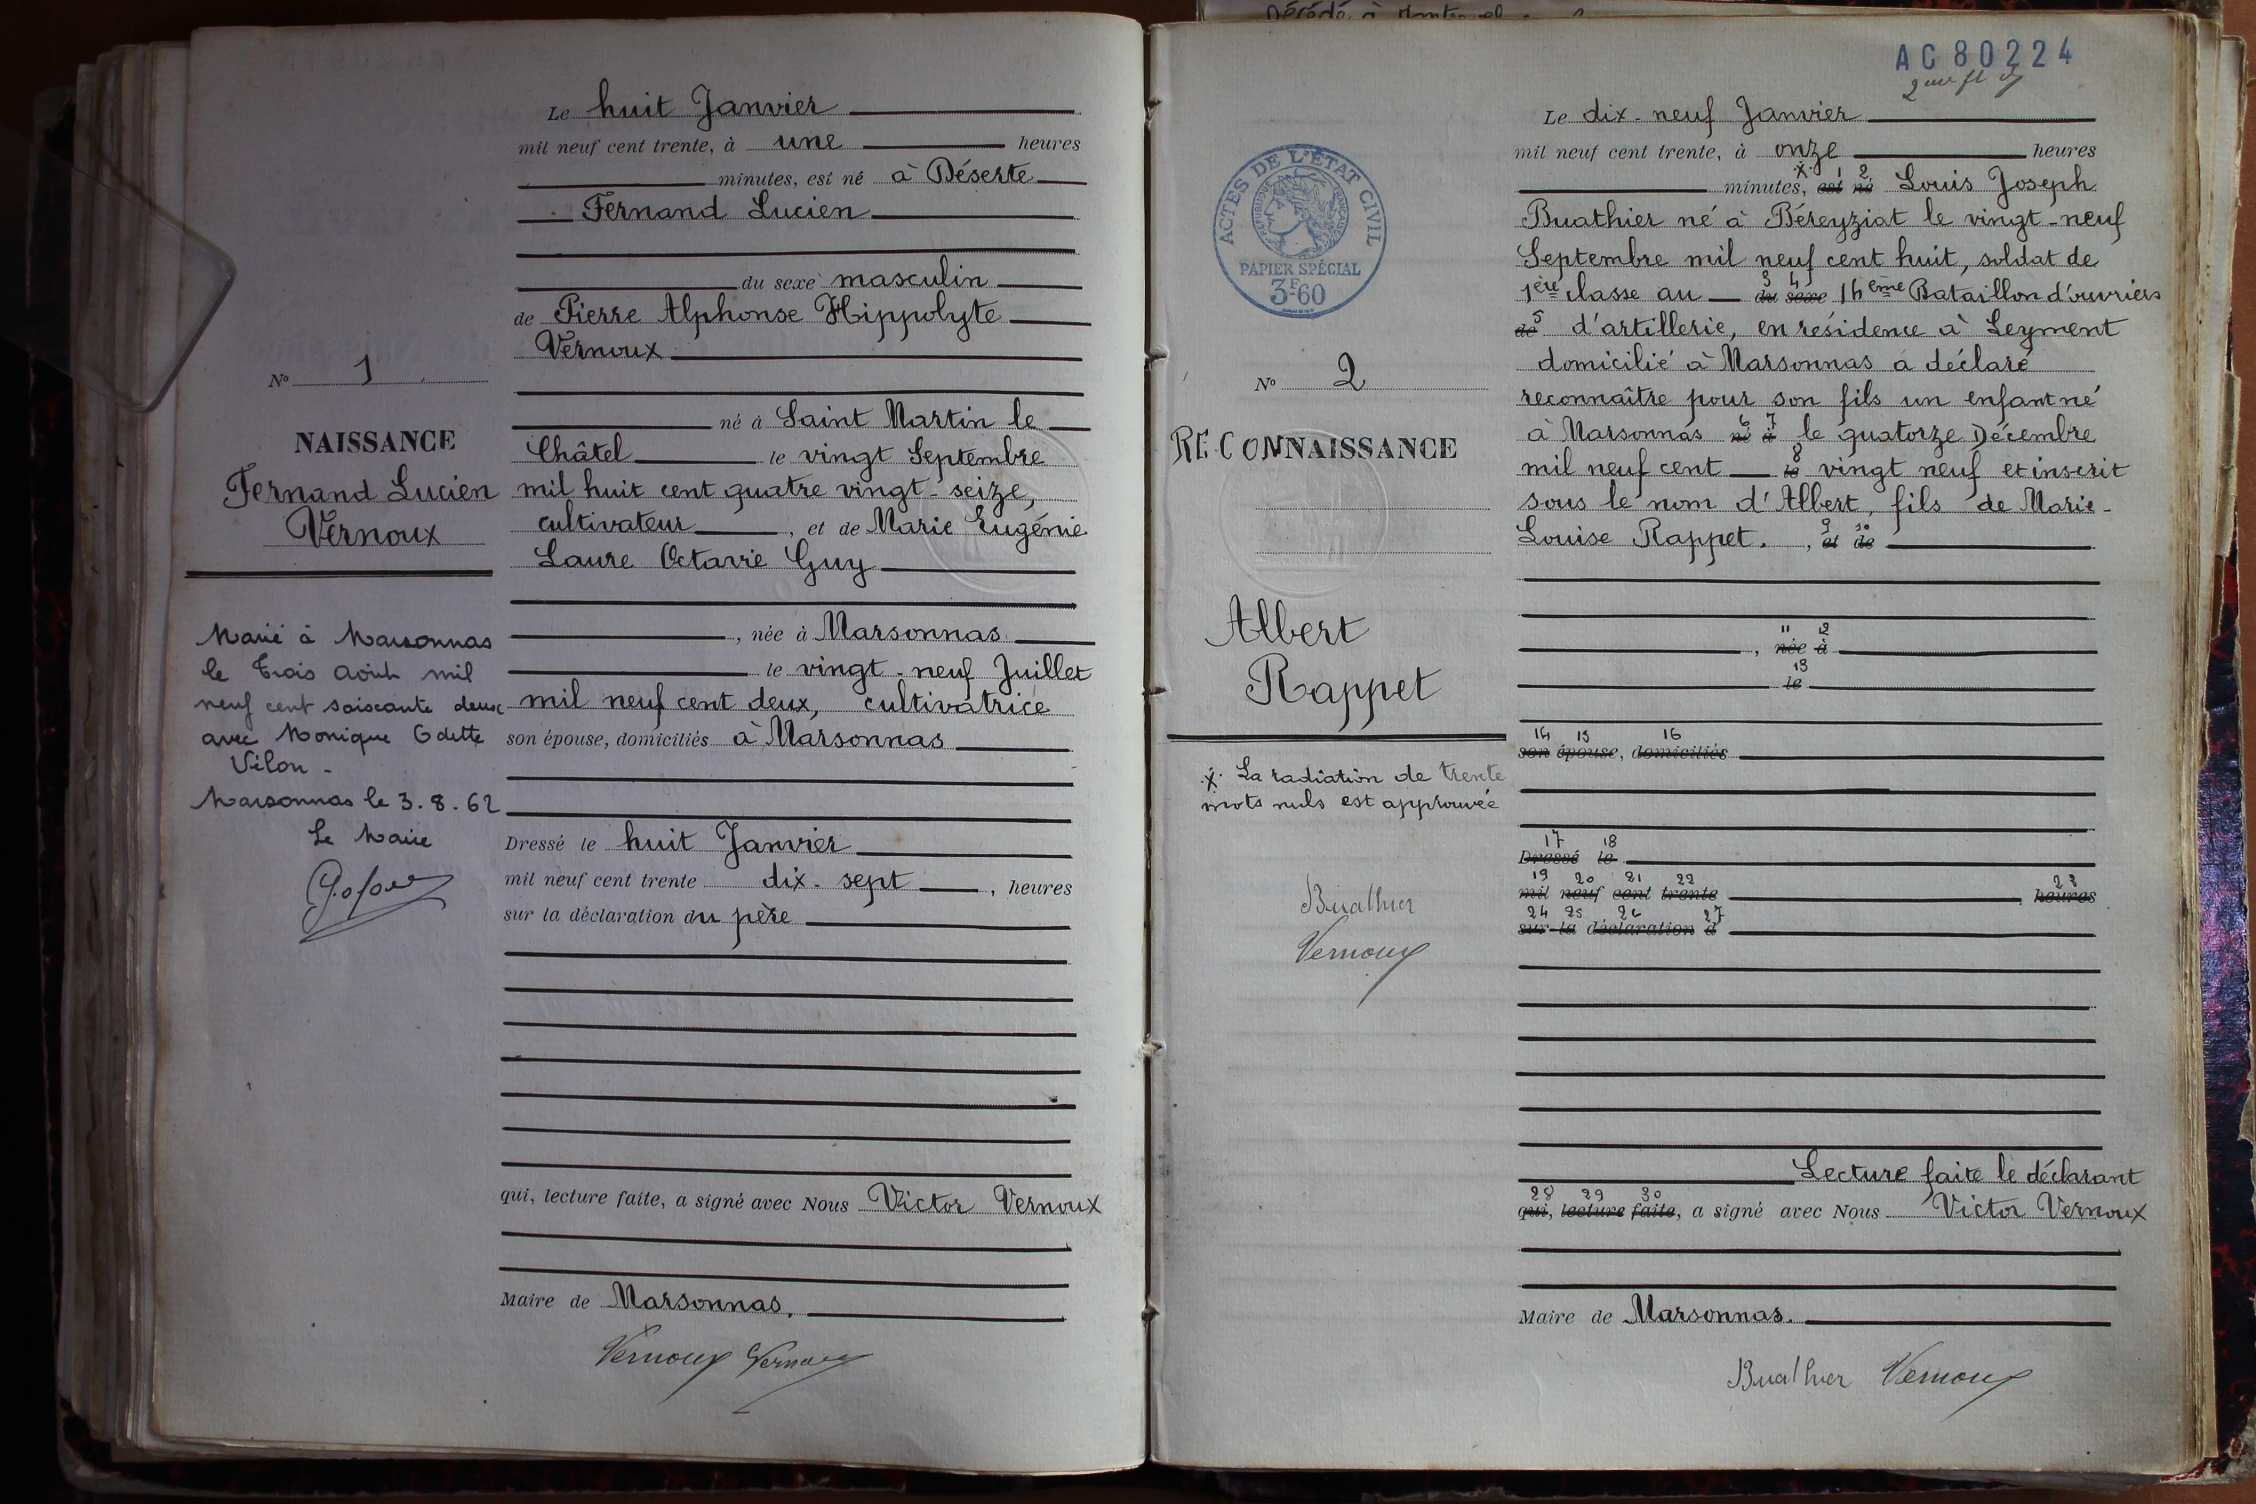 Le huit Janvier
mil neuf cent trente, à une heures
minutes, est né à Béserte
Fernand Lucien
du sexe masculin
de Pierre Alphonse Hippolyte
Vernoux
né à Saint Martin le
Châtel le vingt Septembre
mil huit cent quatre vingt-seize,
cultivateur, et de Marie Eugénie
Laure Octavie Guy
, née à Marsonnas
le vingt-neuf Juillet
mil neuf cent deux, cultivatrice
son épouse, domiciliés à Marsonnas
Dressé le huit Janvier
mil neuf cent trente dix-sept, heures
sur la déclaration du père
qui, lecture faite, a signé avec Nous Victor Vernoux
Maire de Marsonnas.
Vernoux Vernoux
No 1
NAISSANCE
Fernand Lucien
Vernoux
Marié à Marsonnas
le trois Août mil
neuf cent soiscante deux
avec Monique Odette
Vilon -
Marsonnas le 3.8.62
Le Maire
AC80224
ACTES DE L'ÉTAT CIVIL
RÉPUBLIQUE FRANÇAISE
PAPIER SPÉCIAL
3F60
No 2
RECONNAISSANCE
Albert
Rappet
.x. La radiation de trente
mots nuls est approuvée
Buathier
Vernoux
Le dix-neuf Janvier
mil neuf cent trente, à onze heures
.x. 1 2
minutes, est né Louis Joseph
Buathier né à Béreyziat le vingt-neuf
Septembre mil neuf cent huit, soldat de
3 4
1ère classe au du sexe 14ème Bataillon d'ouvriers
de 5 d'artillerie, en résidence à Leyment
domicilié à Marsonnas a déclaré
reconnaître pour son fils un enfant né
6 7
à Marsonnas né à le quatorze Décembre
8
mil neuf cent le vingt neuf et inscrit
sous le nom d'Albert, fils de Marie-
9 10
Louise Rappet. , et de
11 12
, née à
13
le
14 15 16
son épouse, domiciliés
17 18
Dressé le
19 20 21 22 23
mil neuf cent trente heures
24 25 26 27
sur la déclaration d
Lecture faite le déclarant
28 29 30
qui, lecture faite, a signé avec Nous Victor Vernoux
Maire de Marsonnas.
Buathier Vernoux